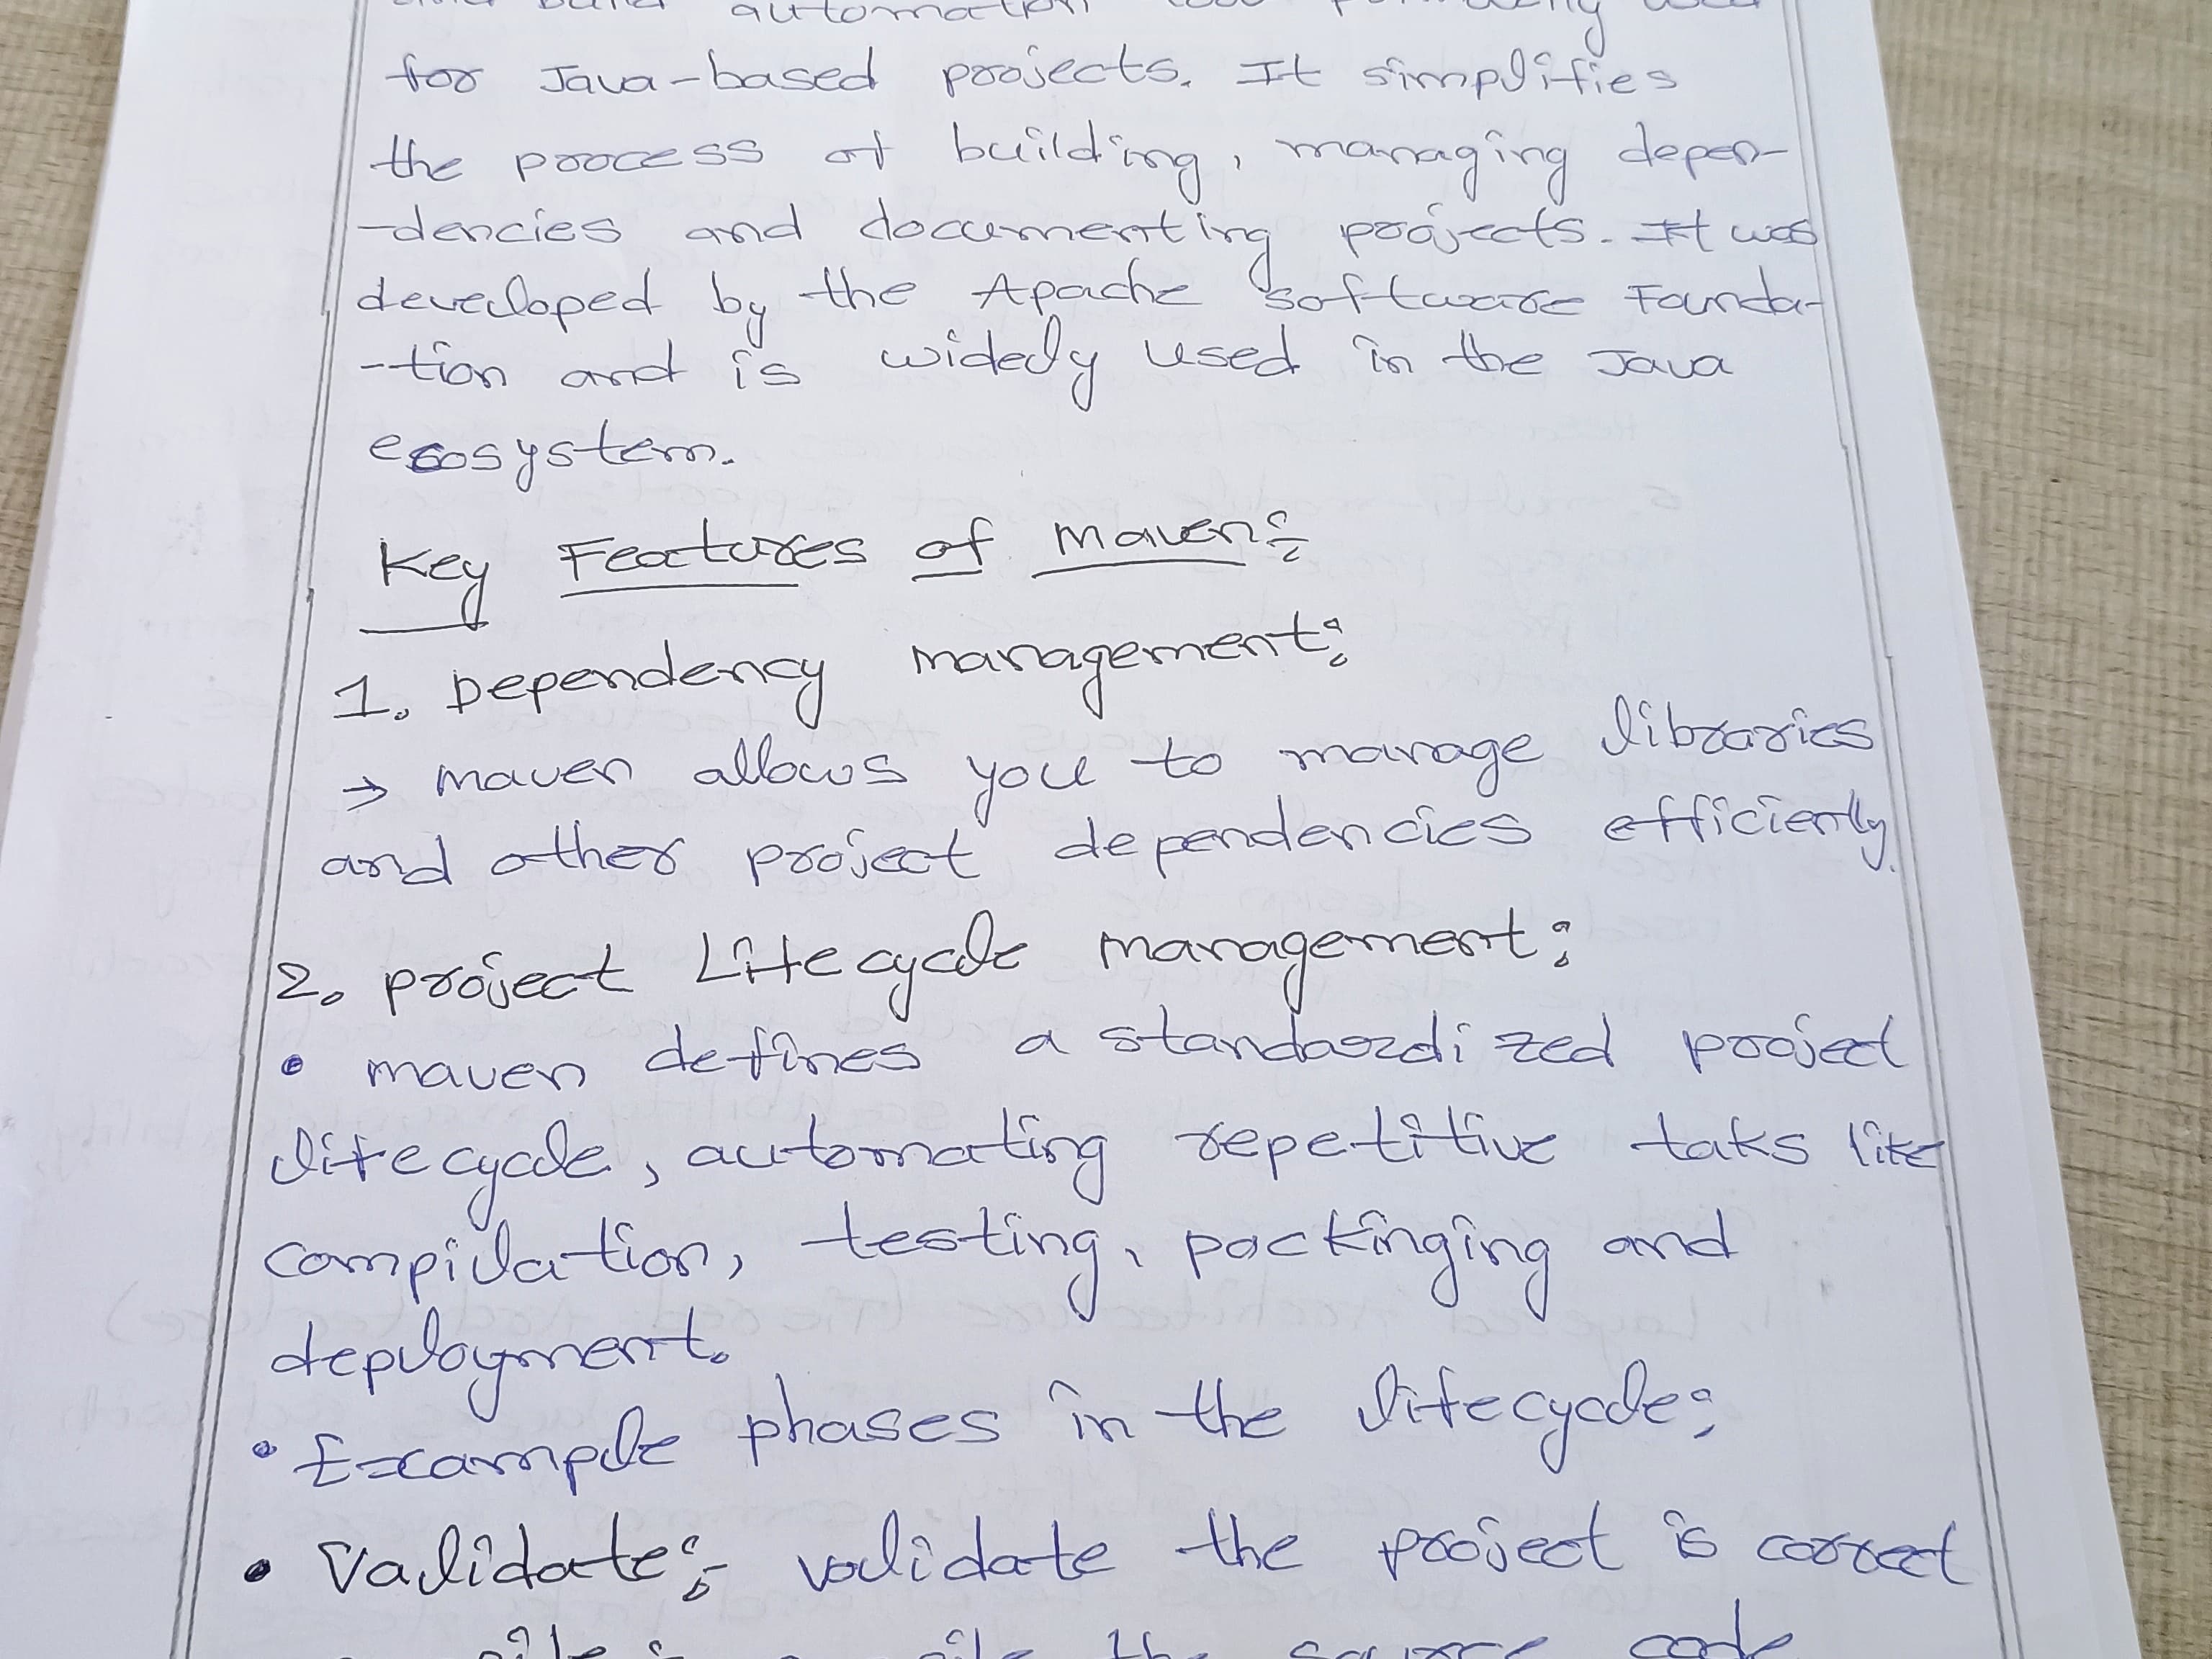 build automation tool
for Java-based projects. It simplifies
the process of building, managing depen-
-dencies and documenting projects. It was
developed by the Apache software Founda-
--tion and is widely used in the Java
ecosystem.
Key Features of Maven:
1. Dependency management:
→ maven allows you to manage libraries
and other project dependencies efficiently.
2. project Lifecycle management:
• maven defines a standardized project
lifecycle, automating repetitive taks like
compilation, testing, packinging and
deployment.
• Example phases in the lifecycle:
• Validate:- validate the project is correct
the source code